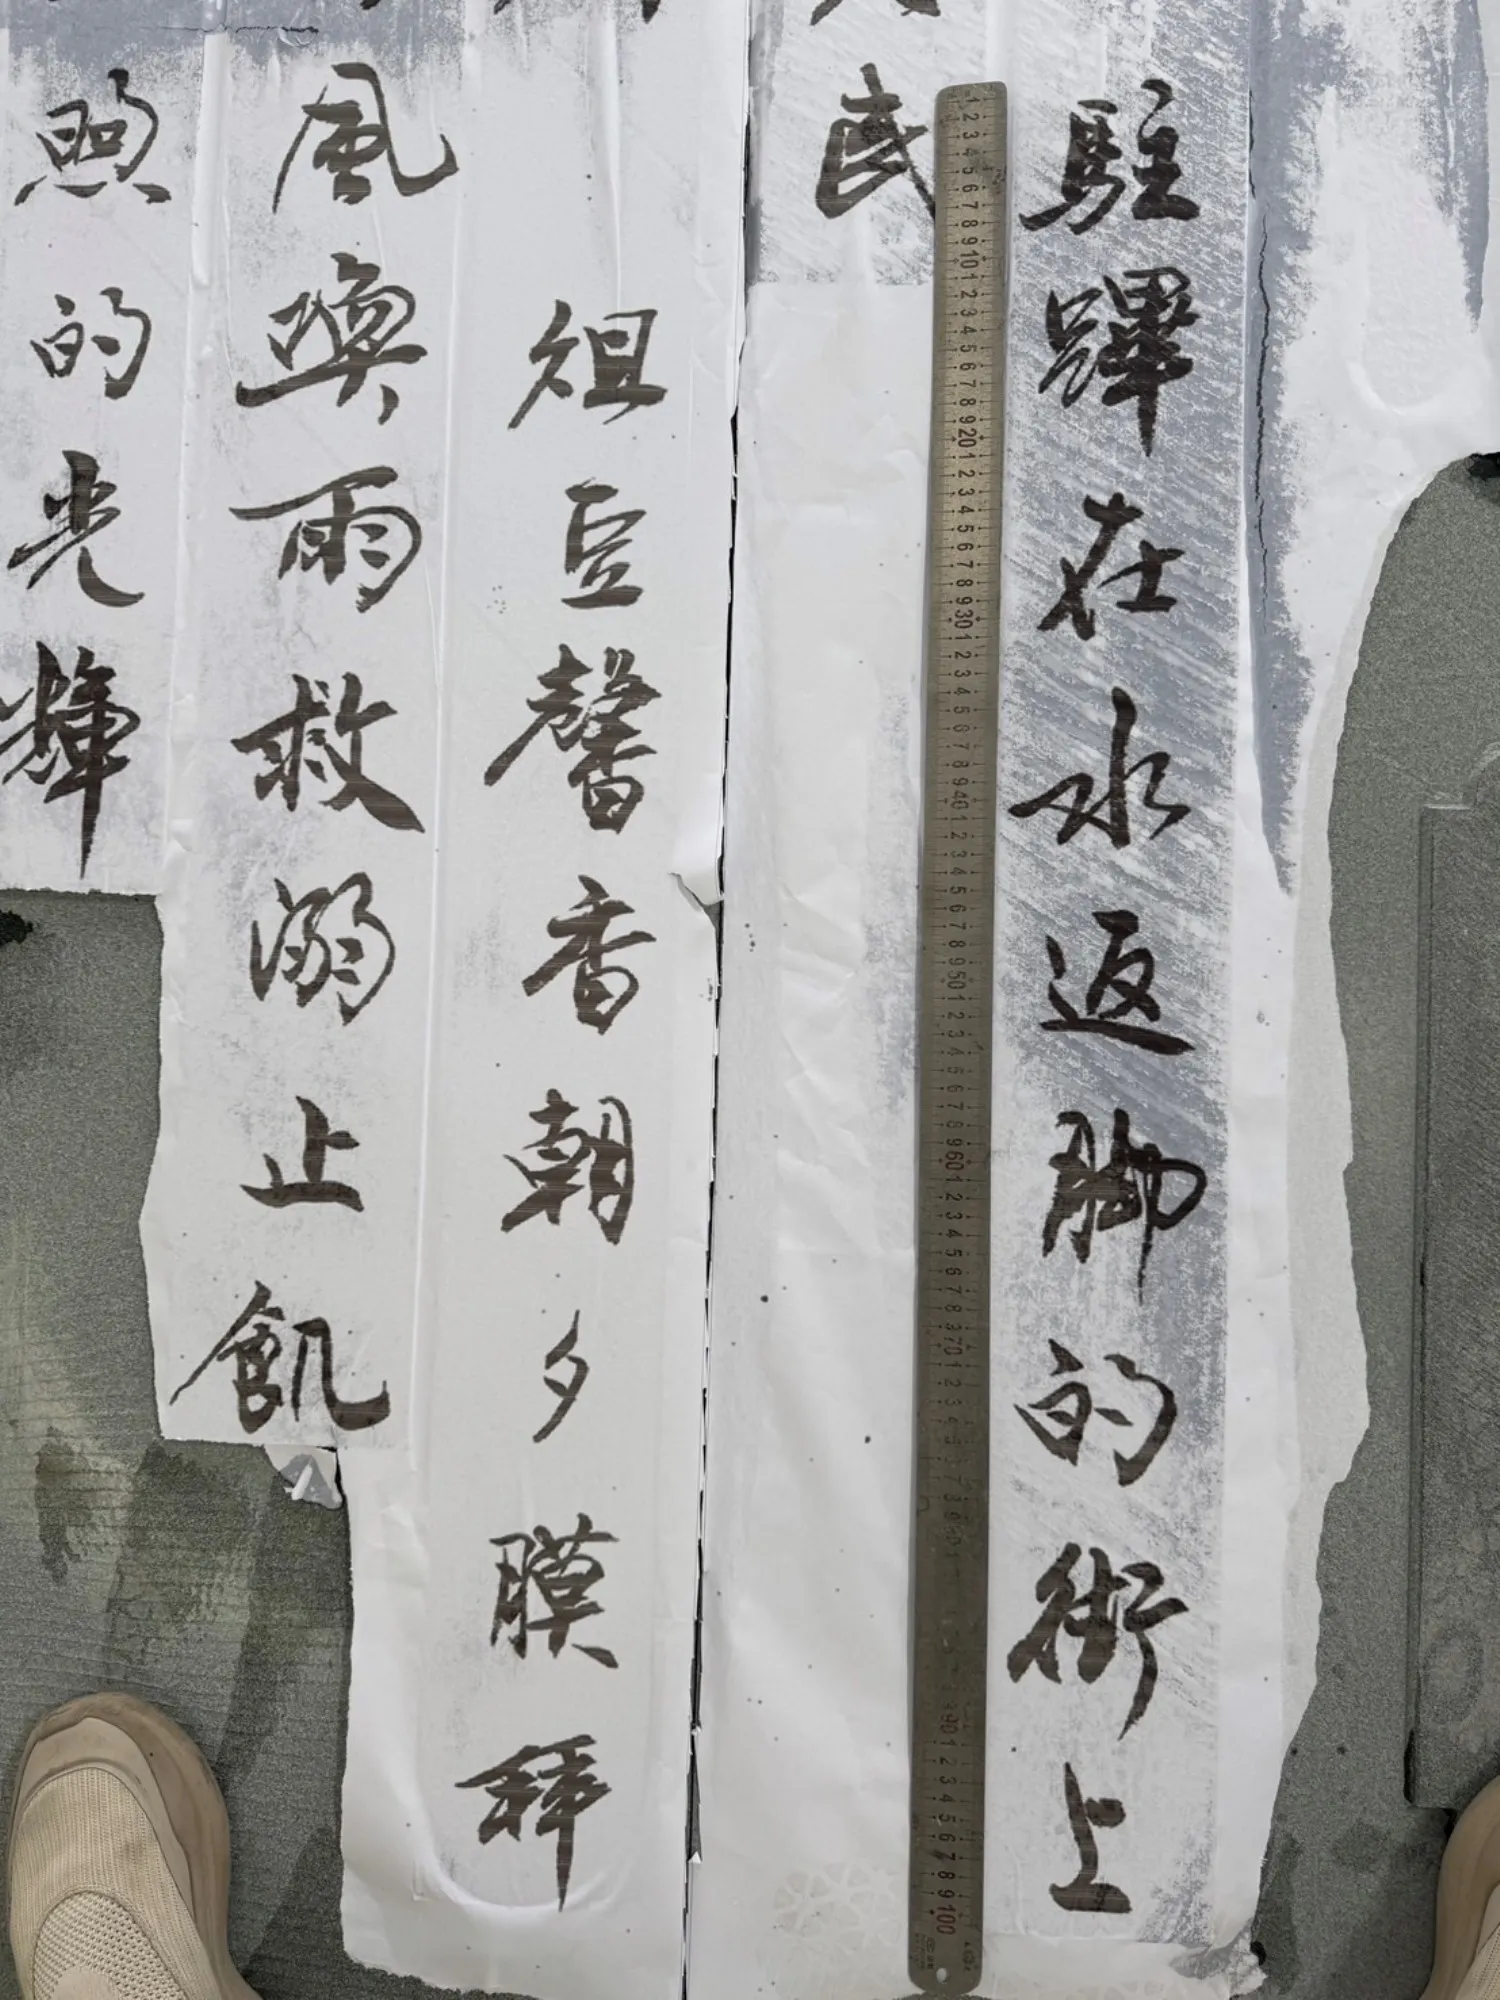 駐蹕在水返腳的街上
民
俎豆馨香朝夕膜拜
風喚雨救溺止飢
照的光輝